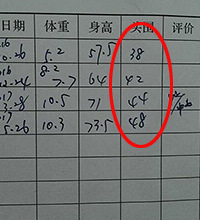 日期 体重 身高 头围 评价
0.26 5.2 57.5 38
8.2
2-24 7.7 64 42
3.28 10.5 71 44
5.26 10.3 73.5 48